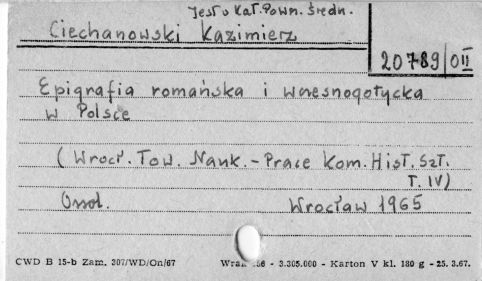 Jest w Kat. Pown. Średn.
Ciechanowski Kazimierz
20789/OII
Epigrafia romańska i wczesnogotycka
w Polsce
(Wrocł. Tow. Nauk. - Prace Kom. Hist. Szt.
T. IV)
Ossol. Wrocław 1965
CWD B 15-b Zam. 307/WD/On/67 56 - 3.305.000 - Karton V kl. 180 g - 25. 3.67.